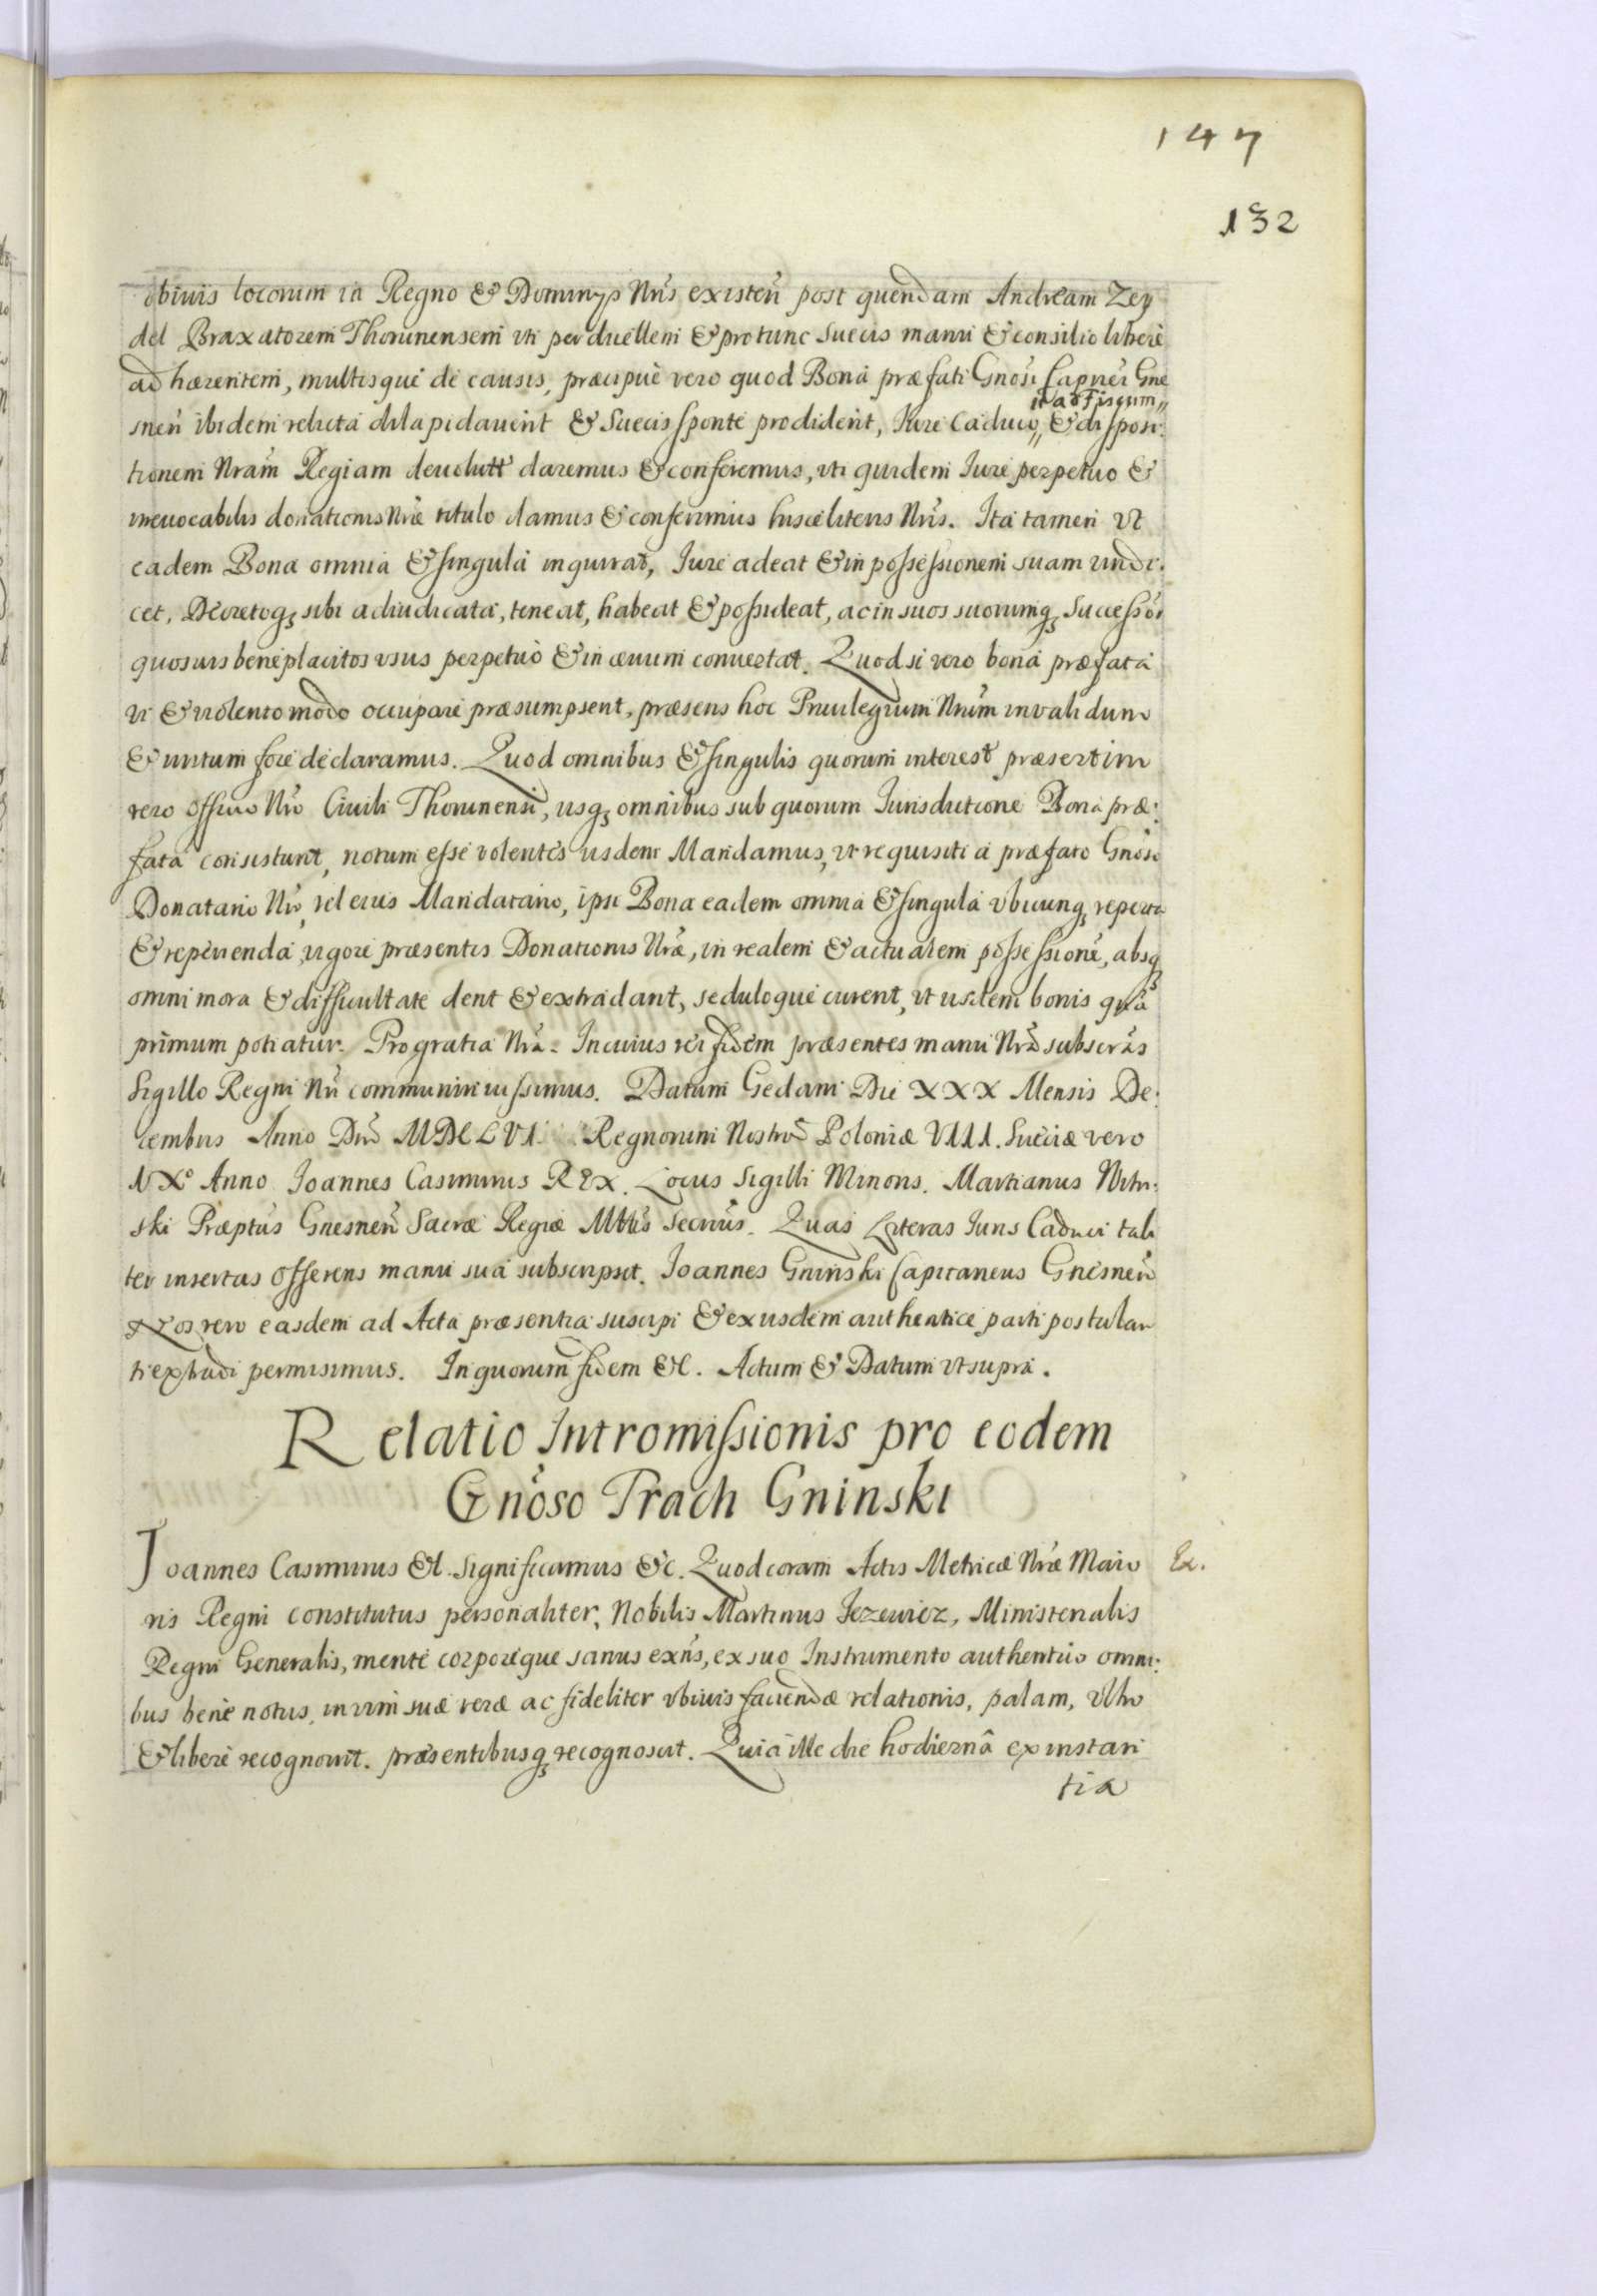 147
132
obiuis locorum in Regno & Dominijs Nris existen̄ post quendam Andream Zey
del Braxatorem Thorunensem uti perduellem & pro tunc Suecis manu & consilio liberè
adhærentem, multisque de causis, præcipuè vero quod Bona præfati Gnosi Capnei Gne
in ad Fiscum„
snen̄ ibidem relicta dilapidauerit & Suecis sponte prodiderit, Iure Caduco„ & disposi:
tionem Nram Regiam deuolutt daremus & conferemus, vti quidem Iure perpetuo &
irreuocabilis donationis Nræ titulo damus & conferimus hisce literis Nris. Ita tamen vt
eadem Bona omnia & singula inquirat, Iure adeat & in possessionem suam vindi:
cet, Decretoq; sibi adiudicata, teneat, habeat & possideat, ac in suos suorumq; Successor̄
quosuis beneplacitos vsus perpetuò & in æuum conuertat. Quod si vero bona præfata
vi & violento modo occupare præsumpserit, præsens hoc Priuilegium Nrum inualidum
& irritum fore declaramus. Quod omnibus & singulis quorum interest præsertim
vero Officio Nro Ciuili Thorunensi, ijsq; omnibus sub quorum Iurisdictione Bona præ:
fata consistunt, notum esse volentes ijsdem Mandamus, vt requisiti a præfato Gnoso
Donatario Nro, vel eius Mandatario, ipsi Bona eadem omnia & singula vbicunq; reperta
& reperienda, vigore præsentis Donationis Nræ, in realem & actualem possessionē, absq;
omni mora & difficultate dent & extradant, seduloque curent, vt ijsdem bonis quā
primum potiatur. Pro gratia Nra. In cuius rei fidem præsentes manu Nra subscrās
Sigillo Regni Nri communiri iussimus. Datum Gedani Die XXX Mensis De:
cembris Anno Dni MDCLVI. Regnorum Nostror̄ Poloniæ VIII. Sueciæ vero
IX° Anno Ioannes Casimirus REX. Locus Sigilli Minoris. Martianus
ski Præptus Gnesnen̄ Sacræ Regiæ Mttis Secrius. Quas Literas Iuris Caduci tali
ter insertas Offerens manu sua subscripsit. Ioannes Gninski Capitaneus Gnesnen̄
Nos vero easdem ad Acta præsentia suscipi & ex ijsdem authentice parti postulan
ti extradi permisimus. In quorum fidem &c. Actum & Datum vt supra.
Relatio Intromissionis pro eodem
Gnoso Trach Gninski
Ioannes Casimirus &c. Significamus &c. Quod coram Actis Metricæ Nræ Maio Ex.
ris Regni constitutus personaliter, Nobilis Martinus Jezewicz, Ministerialis
Regni Generalis, mente corporeque sanus exn̄s, ex suo Instrumento authentico omni:
bus benè notus, in vim suæ veræ ac fideliter vbiuis faciendæ relationis, palam, vltro
& liberè recognouit. præsentibusq; recognoscit. Quia ille die hodiernâ ex instan
tia